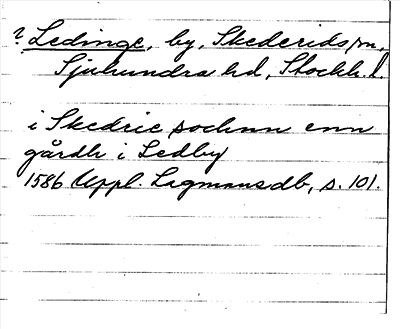 ? Ledinge, by, Skederids sn,
Sjuhundra hd, Stockh. l.
i Skedrie sochnn enn
gårdh i Ledby
1586 Uppl. Lagmansdb, s. 101.